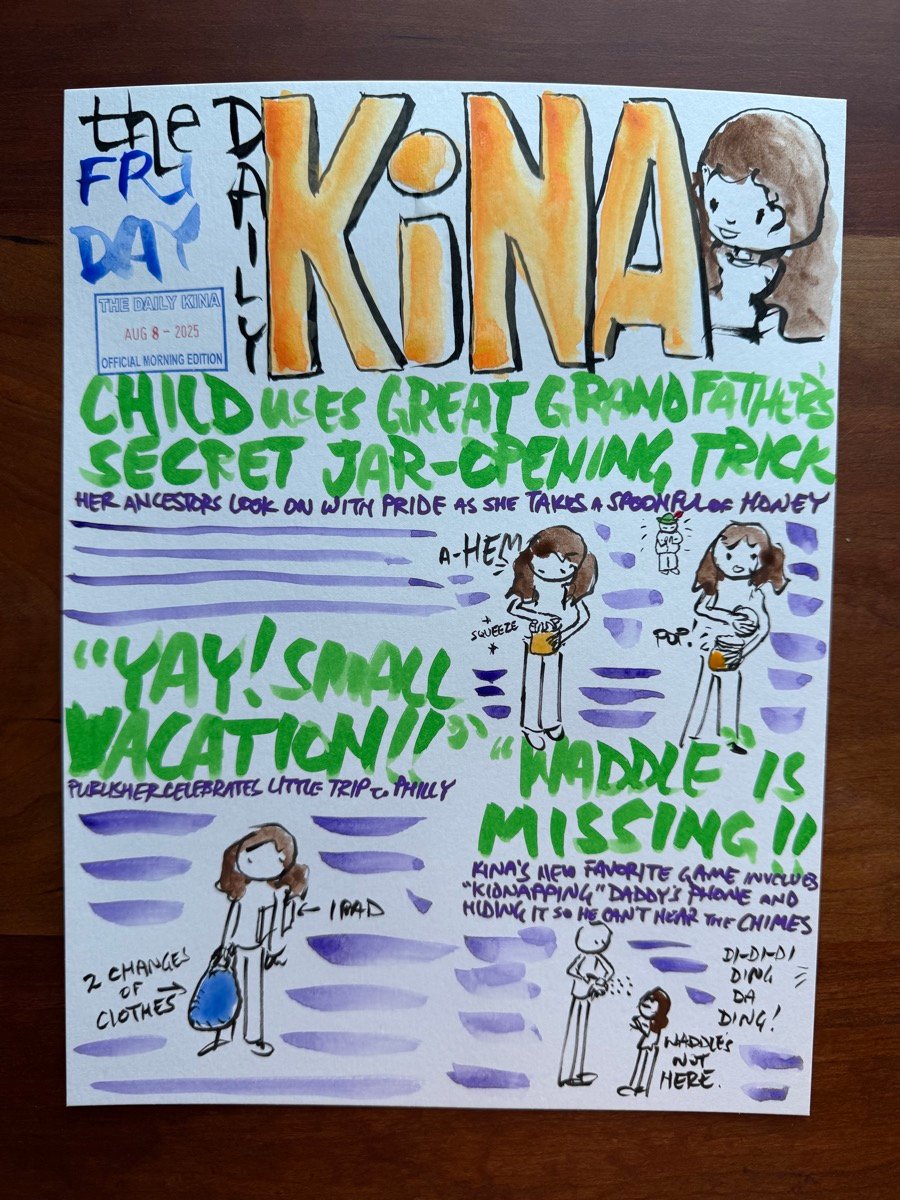 the
FRI
DAY
DAILY
KiNA
THE DAILY KINA
AUG 8 - 2025
OFFICIAL MORNING EDITION
CHILD USES GREAT GRANDFATHER'S
SECRET JAR-OPENING TRICK
HER ANCESTORS LOOK ON WITH PRIDE AS SHE TAKES A SPOONFUL OF HONEY
A-HEM
SQUEEZE
POP!
"YAY! SMALL
VACATION!!"
PUBLISHER CELEBRATES LITTLE TRIP to PHILLY
← IPAD
2 CHANGES
OF
CLOTHES →
"WADDLE" IS
MISSING!!
KINA'S NEW FAVORITE GAME INVOLVES
"KIDNAPPING" DADDY'S PHONE AND
HIDING IT SO HE CAN'T HEAR the CHIMES
DI-DI-DI
DING
DA
DING!
WADDLE'S
NOT
HERE.